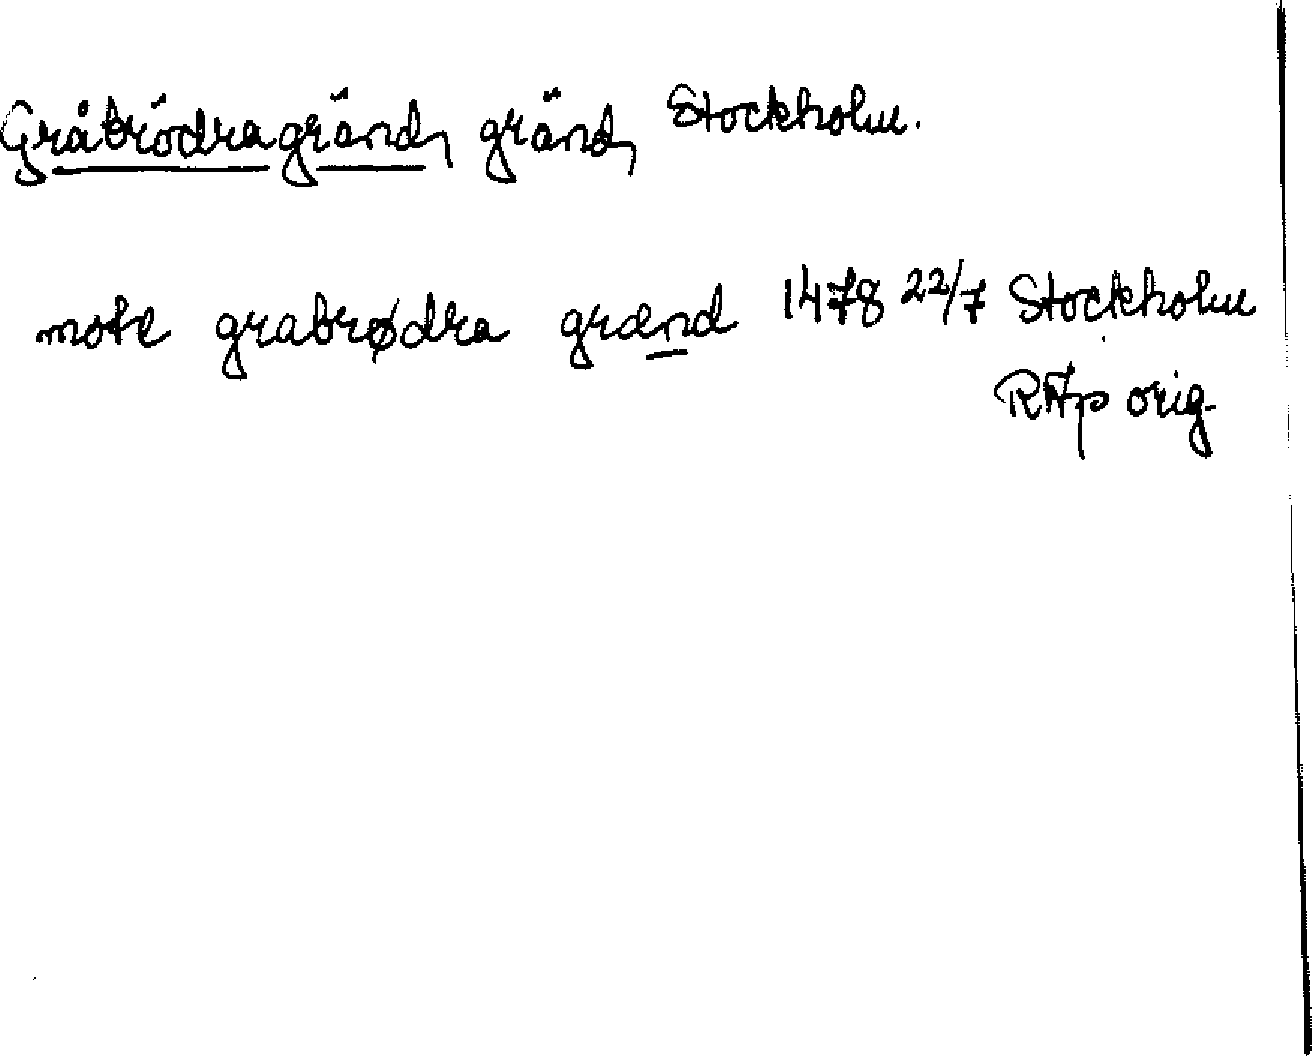 Gråbrödragränd, gränd, Stockholm.
mote grabrødra grænd 1478 22/7 Stockholm
RAp orig.